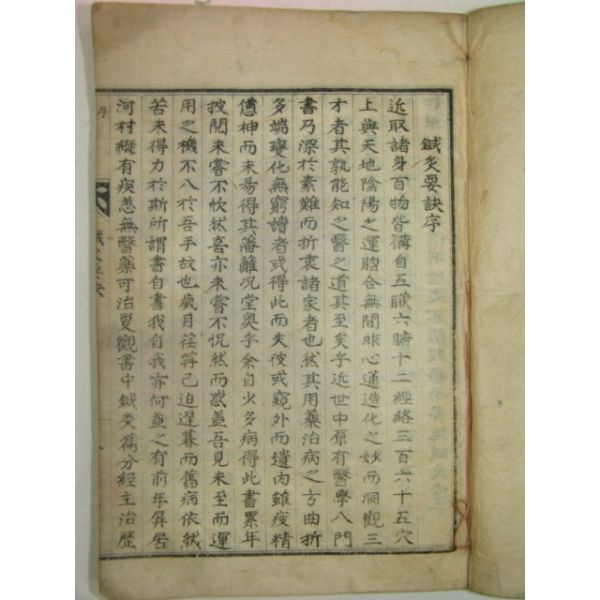 鍼灸要訣序
近取諸身百物皆備自五臟六腑十二經絡三百六十五穴
上與天地陰陽之運脗合無間非心通造化之妙而洞觀三
才者其孰能知之醫之道其至矣乎近世中原有醫學入門
書乃深於素難而折衷諸家者也然其用藥治病之方曲折
多端變化無窮讀者或得此而失彼或窺外而遺內雖疲精
憊神而未易得其藩籬況堂奧乎余自少多病得此書累年
披閱未嘗不欣然喜亦未嘗不怳然而惑蓋吾見未至而運
用之機不入於吾手故也歲月荏苒已迫遲暮而舊病依然
苦未得力於斯所謂書自書我自我亦何益之有前年屏居
河村縱有疾恙無醫藥可治夏觀書中鍼灸篇分經主治歷
序